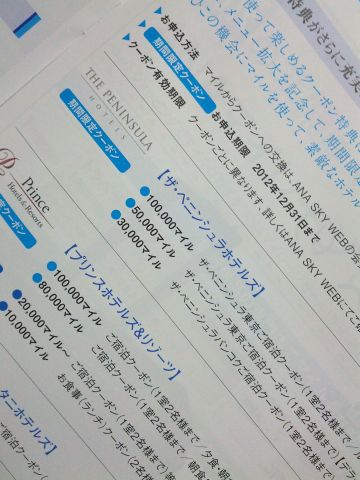 特典がさらに充実
使って楽しめるクーポン特典
メニュー拡大を記念して、期間限
この機会にマイルを使って、素敵なホテル
▶お申込方法 マイルからクーポンへの交換は、ANA SKY WEBの会
期間限定クーポン お申込期限 2012年12月31日まで
▶クーポン有効期限 クーポンごとに異なります。詳しくはANA SKY WEBにてご
THE PENINSULA
HOTELS
期間限定クーポン
【ザ・ペニンシュラホテルズ】
●100,000マイル ザ・ペニンシュラ東京ご宿泊クーポン(1室2名様まで/夕食・朝
●50,000マイル ザ・ペニンシュラ東京ご宿泊クーポン(1室2名様まで
●30,000マイル ザ・ペニンシュラバンコクご宿泊クーポン(1室2名様まで)【デラ
Prince
Hotels & Resorts
定クーポン
【プリンスホテルズ&リゾーツ】
●100,000マイル ご宿泊クーポン(1室2名様まで
●80,000マイル ご宿泊クーポン(1室2名様まで/朝食
●20,000マイル〜 ご宿泊クーポン(1室2名様まで
●10,000マイル お食事(ランチ)クーポン(2名
タニホテルズ】
ご宿泊クーポン(